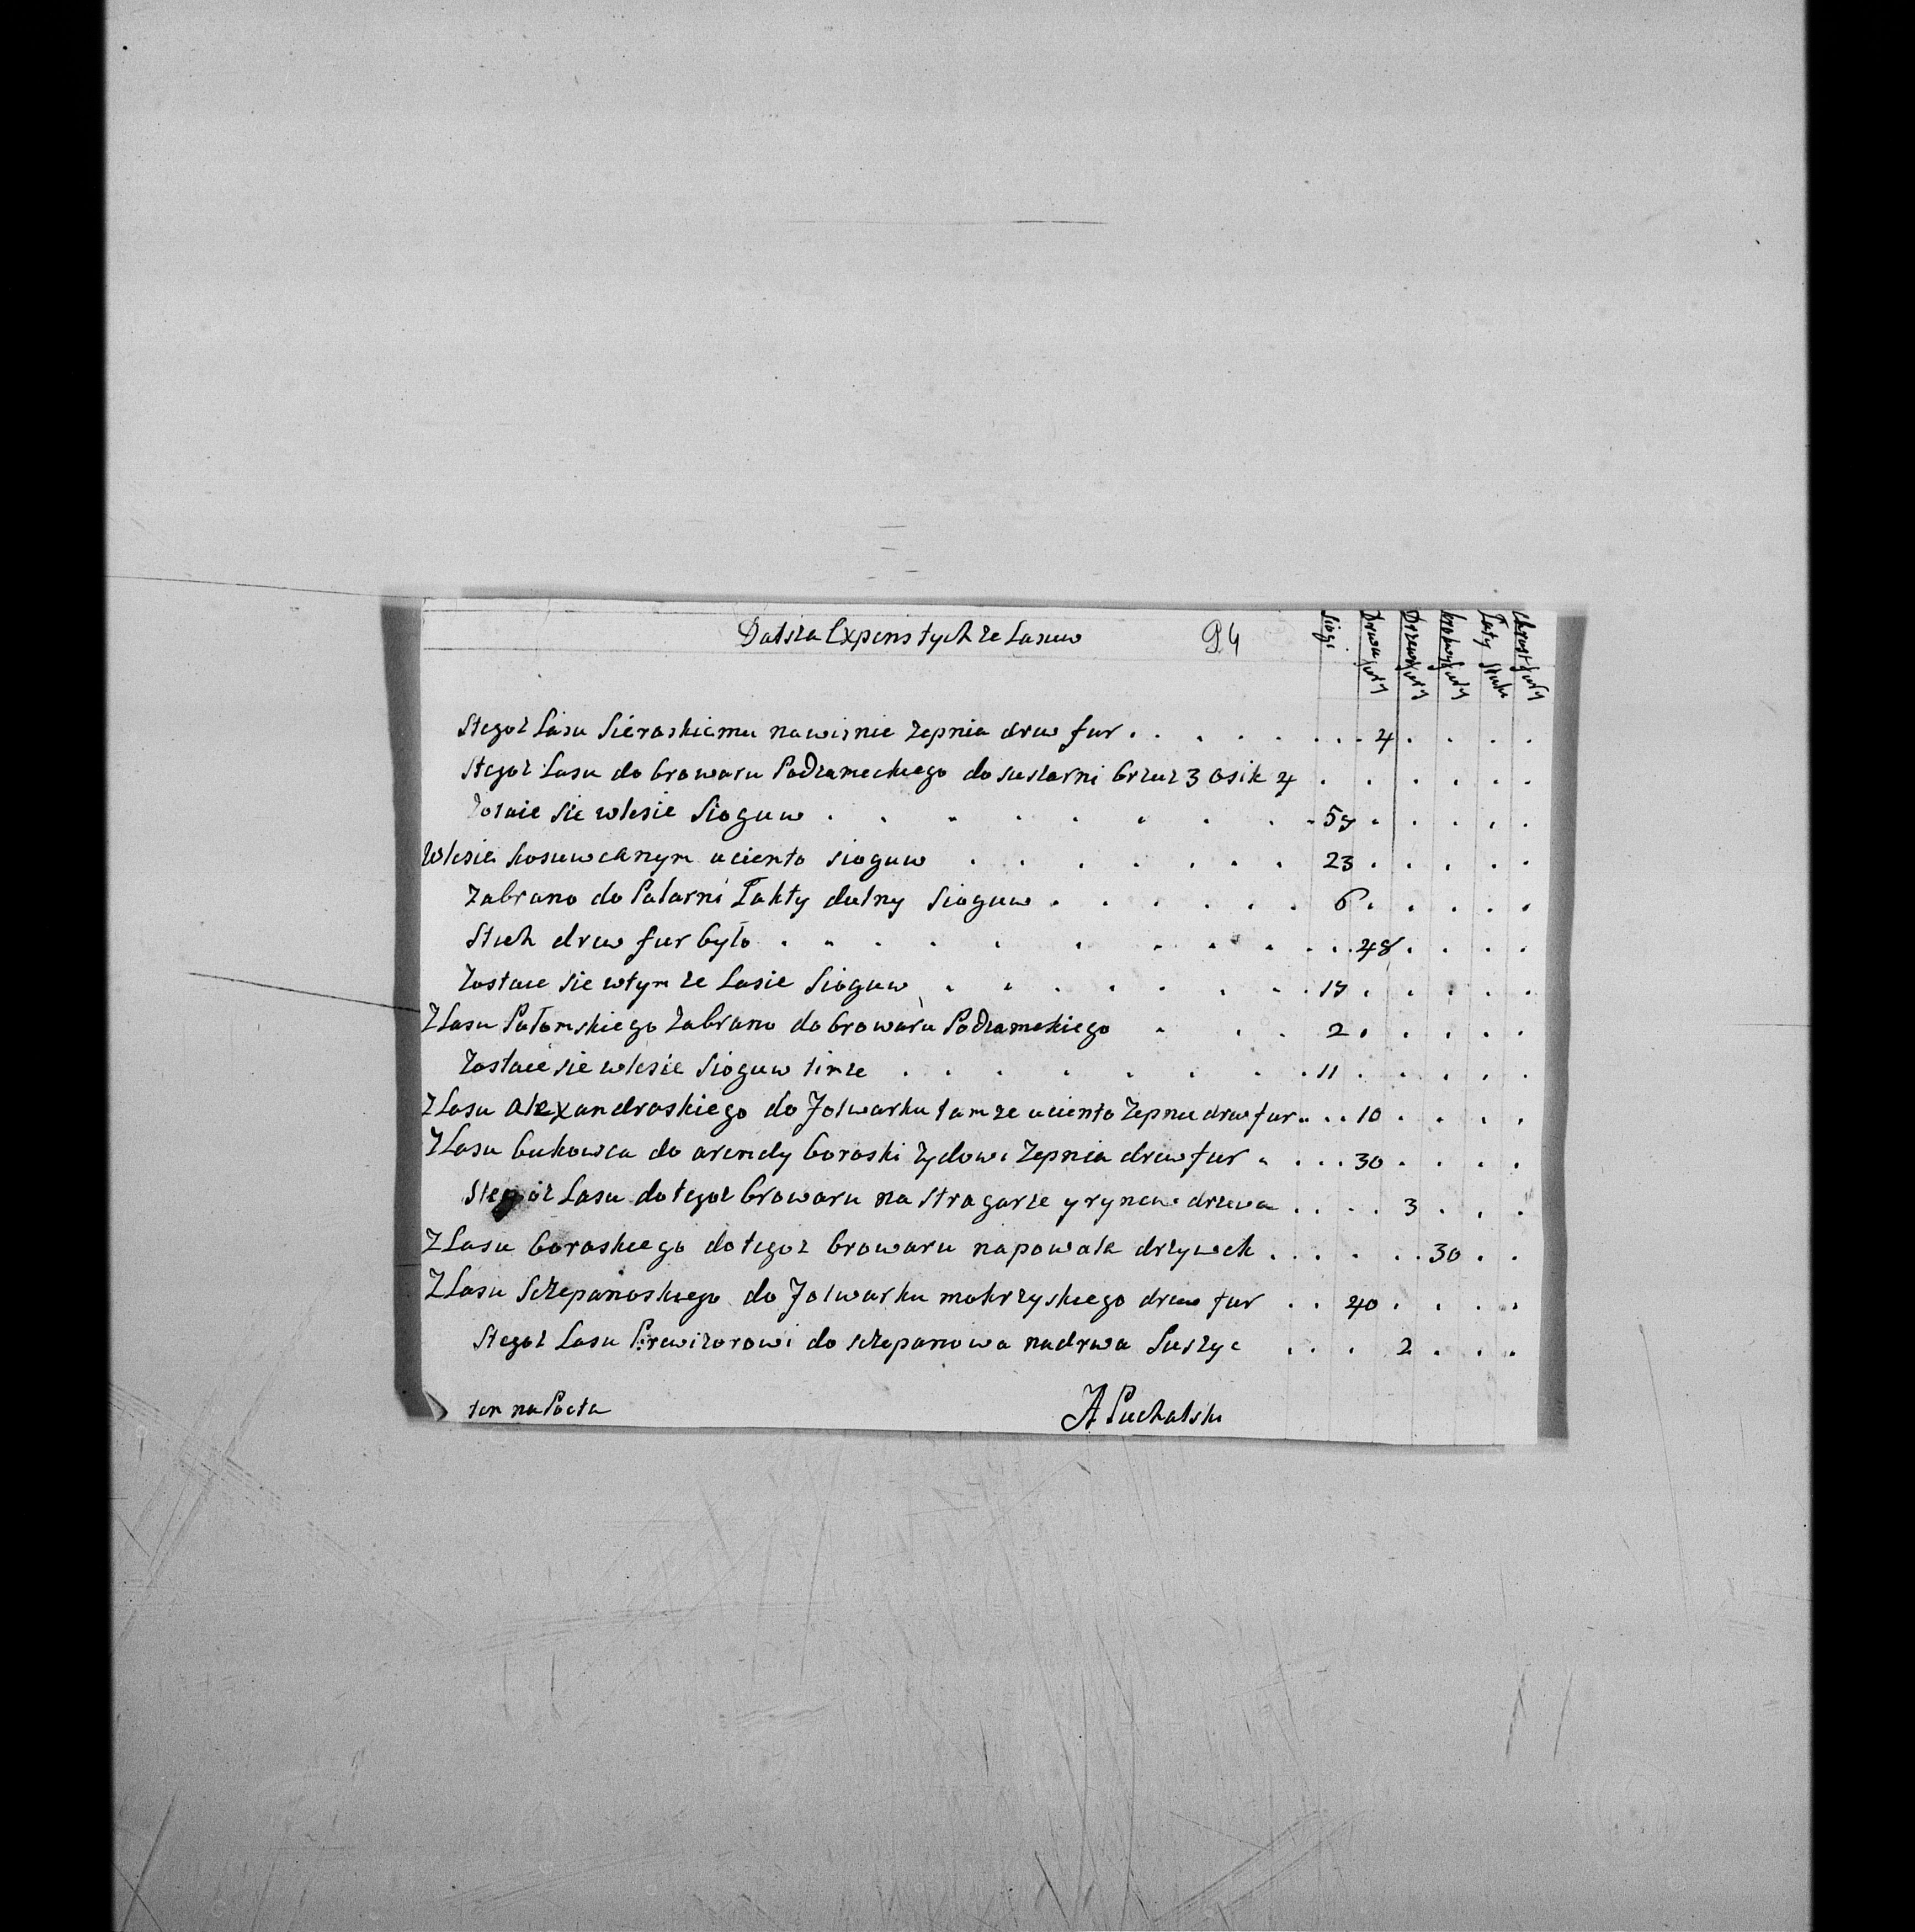 Dalsza Expens tych ze Lasuw 94
Siągi Drwa fury Drzewa fury fury Łaty sztuk chrust fury
Stegoż Lasu Sieraskiemu na wisnie zepnia drw fur . . . . 4 . . . .
Stegoż Lasu do browaru Podzameckiego do suszarni brzuz 3 osik 4 . . . . . .
Zostaie sie wlesie Sioguw . . . . 57 . . . . .
Wlesie ucięnto sioguw . . . . 23 . . . . .
Zabrano do Palarni Takty dulny Sioguw . . . . 6 . . . . .
Stych drw fur było . . . . 48 . . . .
Zostaie sie wtym ze Lasie Sioguw . . . . 17 . . . . .
Z Lasu Patomskiego Zabrano do browaru Podzameskiego . . . 2 . . . . .
Zostaie sie wlesie Sioguw . . . . 11 . . . . .
Z Lasu Alexandroskiego do Folwarku tamze ucięnto Zepniu drw fur . . . 10 . . . .
Z Lasu bukowca do arendy boroski żydowi Zepnia drw fur . . . . 30 . . . .
Stegoż Lasu do tegoż browaru na stragarze y rynew drzewa . . . . 3 . . .
Z Lasu boroskiego do tegoż browaru na powałe drzywek . . . . 30 . .
Z Lasu Sczepanoskiego do Folwarku mokrzyskiego drew fur . . 40 . . . .
Stegoż Lasu Prowizorowi do sczepanowa na drwa Suszyc . . . 2 . . .
ten na Pocta A Puchalski